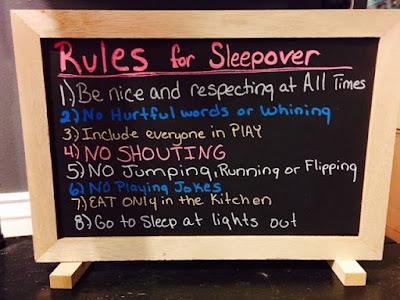 Rules for Sleepover
1.) Be nice and respecting at All Times
2.) No Hurtful words or Whining
3.) Include everyone in PLAY
4.) NO SHOUTING
5.) NO Jumping, Running or Flipping
6.) NO Playing Jokes
7.) EAT ONLY in the Kitchen
8.) Go to Sleep at lights out